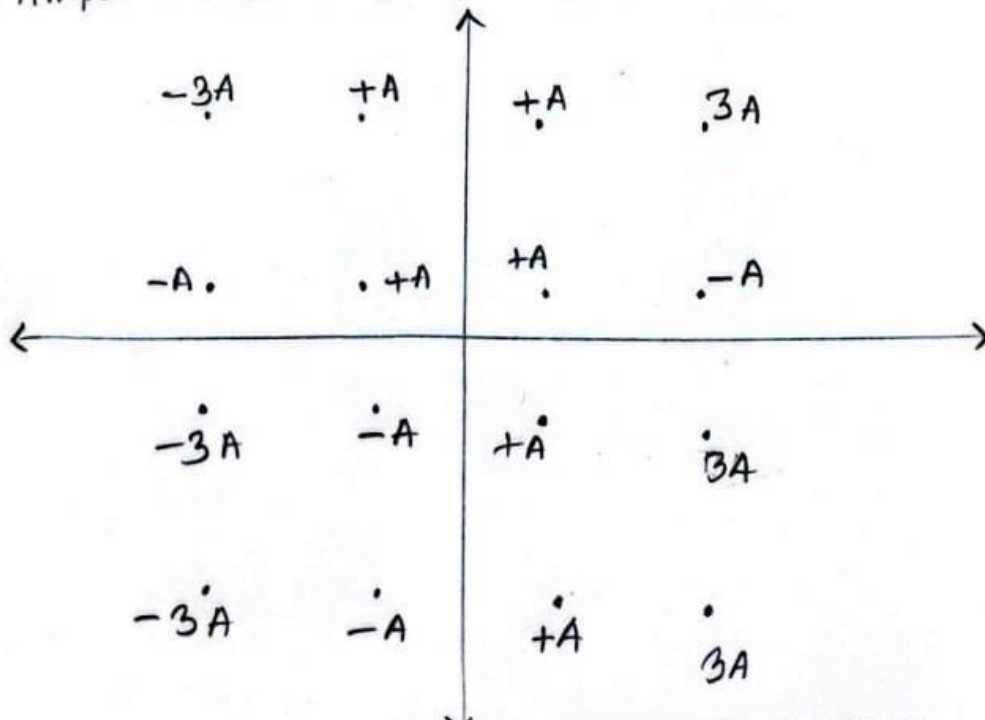 -3A +A +A 3A
-A +A +A -A
-3A -A +A 3A
-3A -A +A 3A